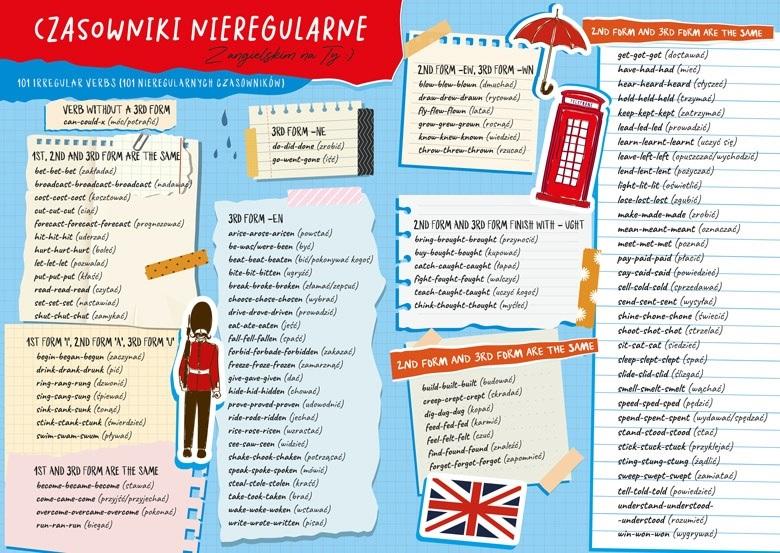 CZASOWNIKI NIEREGULARNE
Z angielskim na Ty :)
101 IRREGULAR VERBS (101 NIEREGULARNYCH CZASOWNIKÓW)
VERB WITHOUT A 3RD FORM
can-could-x (móc/potrafić)
1ST, 2ND AND 3RD FORM ARE THE SAME
bet-bet-bet (zakładać)
broadcast-broadcast-broadcast (nadawać)
cost-cost-cost (kosztować)
cut-cut-cut (ciąć)
forecast-forecast-forecast (prognozować)
hit-hit-hit (uderzać)
hurt-hurt-hurt (boleć)
let-let-let (pozwalać)
put-put-put (kłaść)
read-read-read (czytać)
set-set-set (nastawiać)
shut-shut-shut (zamykać)
1ST FORM 'I', 2ND FORM 'A', 3RD FORM 'U'
begin-began-begun (zaczynać)
drink-drank-drunk (pić)
ring-rang-rung (dzwonić)
sing-sang-sung (śpiewać)
sink-sank-sunk (tonąć)
stink-stank-stunk (śmierdzieć)
swim-swam-swum (pływać)
1ST AND 3RD FORM ARE THE SAME
become-became-become (stawać)
come-came-come (przyjść/przyjechać)
overcome-overcame-overcome (pokonać)
run-ran-run (biegać)
3RD FORM -NE
do-did-done (zrobić)
go-went-gone (iść)
3RD FORM -EN
arise-arose-arisen (powstać)
be-was/were-been (być)
beat-beat-beaten (bić/pokonywać kogoś)
bite-bit-bitten (ugryźć)
break-broke-broken (złamać/zepsuć)
choose-chose-chosen (wybrać)
drive-drove-driven (prowadzić)
eat-ate-eaten (jeść)
fall-fell-fallen (spaść)
forbid-forbade-forbidden (zakazać)
freeze-froze-frozen (zamarznąć)
give-gave-given (dać)
hide-hid-hidden (chować)
prove-proved-proven (udowodnić)
ride-rode-ridden (jechać)
rise-rose-risen (wzrastać)
see-saw-seen (widzieć)
shake-shook-shaken (potrząsać)
speak-spoke-spoken (mówić)
steal-stole-stolen (kraść)
take-took-taken (brać)
wake-woke-woken (wstawać)
write-wrote-written (pisać)
2ND FORM -EW, 3RD FORM -WN
blow-blew-blown (dmuchać)
draw-drew-drawn (rysować)
fly-flew-flown (latać)
grow-grew-grown (rosnąć)
know-knew-known (wiedzieć)
throw-threw-thrown (rzucać)
TELEPHONE
2ND FORM AND 3RD FORM FINISH WITH - UGHT
bring-brought-brought (przynosić)
buy-bought-bought (kupować)
catch-caught-caught (łapać)
fight-fought-fought (walczyć)
teach-taught-taught (uczyć kogoś)
think-thought-thought (myśleć)
2ND FORM AND 3RD FORM ARE THE SAME
build-built-built (budować)
creep-crept-crept (skradać)
dig-dug-dug (kopać)
feed-fed-fed (karmić)
feel-felt-felt (czuć)
find-found-found (znaleźć)
forget-forgot-forgot (zapomnieć)
2ND FORM AND 3RD FORM ARE THE SAME
get-got-got (dostawać)
have-had-had (mieć)
hear-heard-heard (słyszeć)
hold-held-held (trzymać)
keep-kept-kept (zatrzymać)
lead-led-led (prowadzić)
learn-learnt-learnt (uczyć się)
leave-left-left (opuszczać/wychodzić)
lend-lent-lent (pożyczać)
light-lit-lit (oświetlić)
lose-lost-lost (zgubić)
make-made-made (zrobić)
mean-meant-meant (oznaczać)
meet-met-met (poznać)
pay-paid-paid (płacić)
say-said-said (powiedzieć)
sell-sold-sold (sprzedawać)
send-sent-sent (wysyłać)
shine-shone-shone (świecić)
shoot-shot-shot (strzelać)
sit-sat-sat (siedzieć)
sleep-slept-slept (spać)
slide-slid-slid (ślizgać)
smell-smelt-smelt (wąchać)
speed-sped-sped (pędzić)
spend-spent-spent (wydawać/spędzać)
stand-stood-stood (stać)
stick-stuck-stuck (przyklejać)
sting-stung-stung (żądlić)
sweep-swept-swept (zamiatać)
tell-told-told (powiedzieć)
understand-understood-
-understood (rozumieć)
win-won-won (wygrywać)